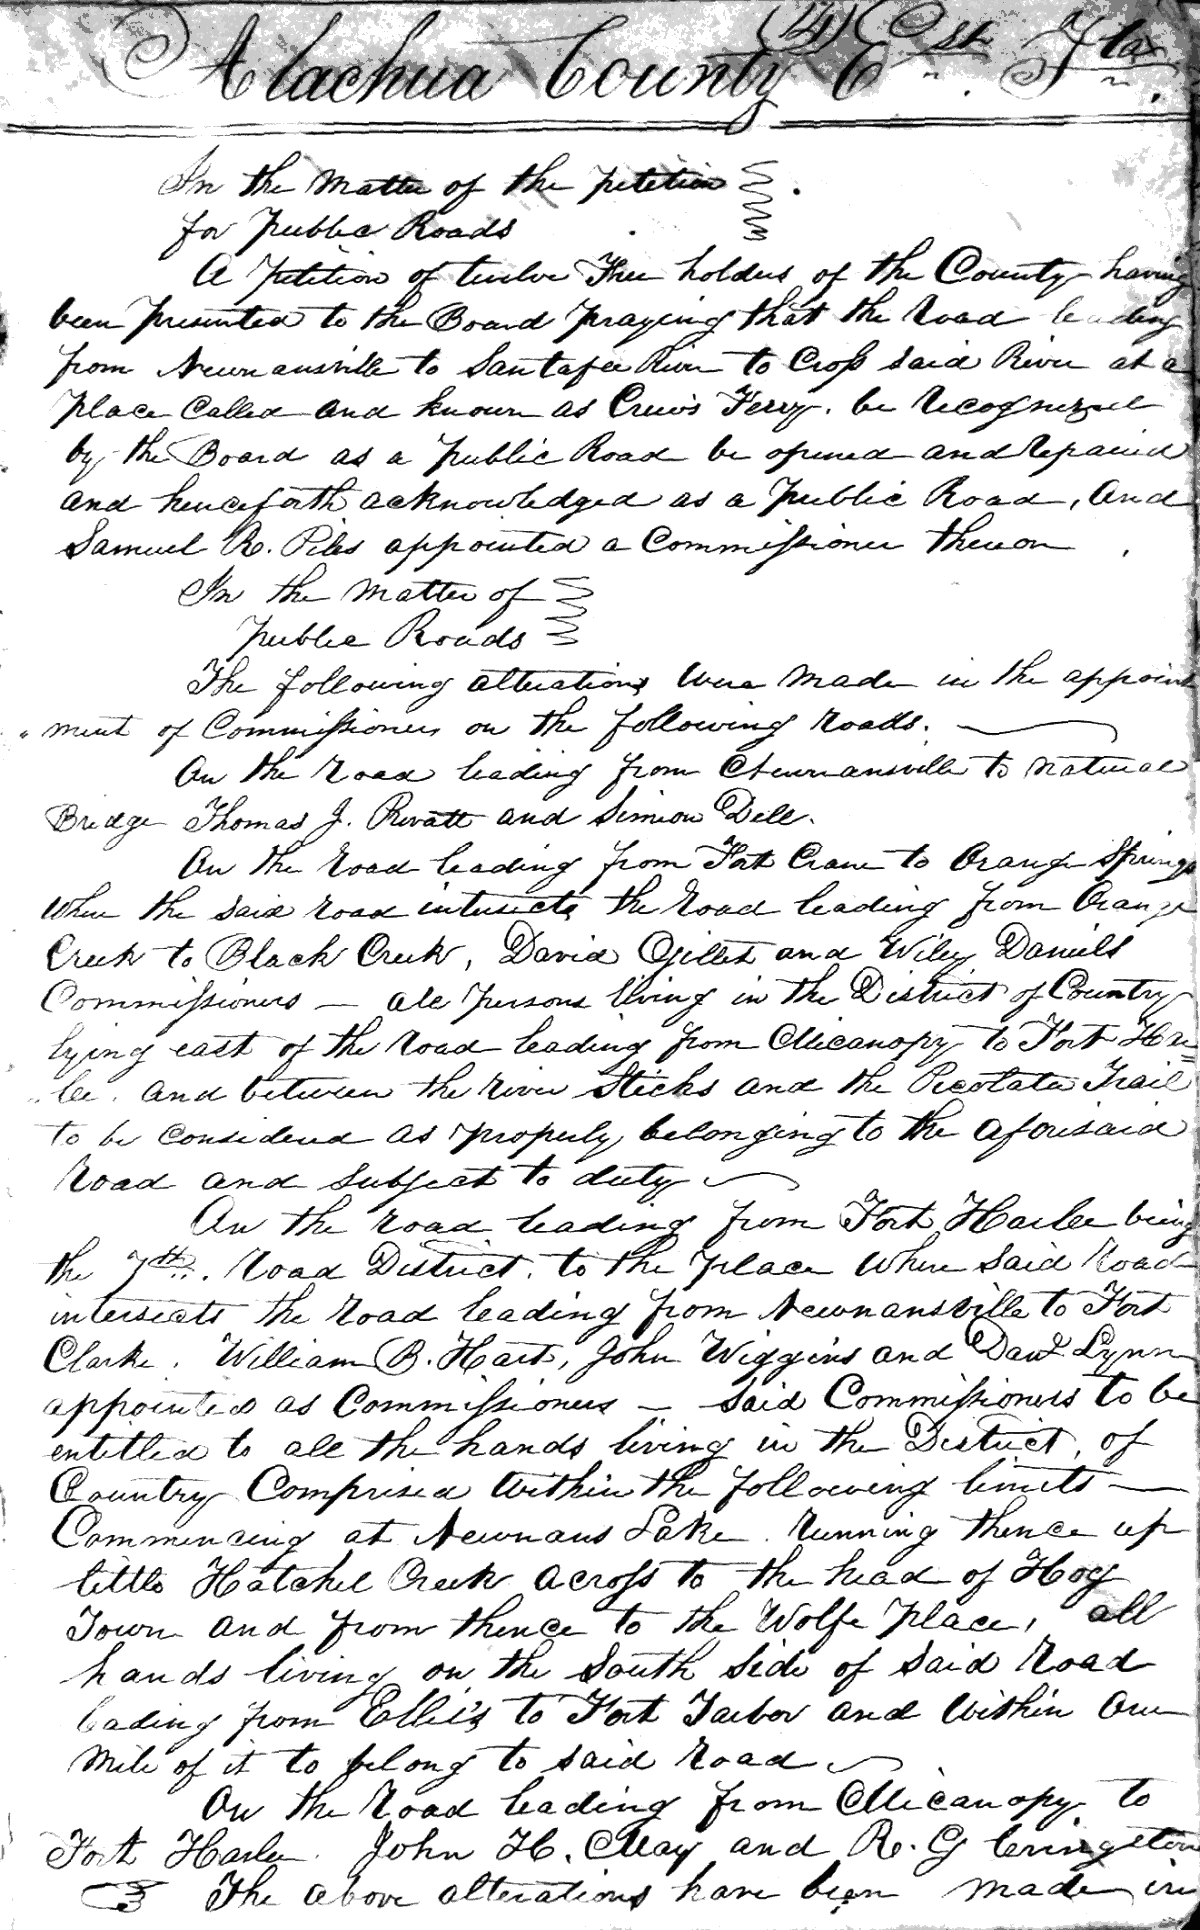 (14)
Alachua County E. Fla.
In the matter of the petition
for public Roads
A petition of twelve Free holders of the County having
been presented to the Board praying that the road leading
from Newnansville to Santafee River to Cross said River at a
place Called and known as Crew's Ferry. be recognized
by the Board as a public Road be opened and repaired
and henceforth acknowledged as a public Road, And
Samuel R. Piles appointed a Commissioner thereon
In the matter of
public Roads
The following alterations were made in the appoint
ment of Commissioners on the following roads.
On the road leading from Newnansville to natural
Bridge Thomas J. and Simeon Dell.
On the road leading from Fort Crane to Orange Springs
where the said road intersects the road leading from Orange
Creek to Black Creek, David Gillet and Wiley Daniels
Commissioners — all persons living in the District of Country
lying east of the road leading from Micanopy to Fort Har
lee. and between the river Sticks and the Picolata Trail
to be considered as properly belonging to the aforesaid
road and subject to duty
On the road leading from Fort Harlee being
the 7th. Road District. to the place where said Road
intersects the road leading from Newnansville to Fort
Clarke. William B. Hart, John Wiggins and Danl Lynn
appointed as Commissioners — said Commissioners to be
entitled to all the hands living in the District, of
Country Comprised within the following limits —
Commencing at Newnans Lake. running thence up
little Hatchel Creek across to the head of Hog
Town and from thence to the Wolfe place, all
hands living on the South side of said road
leading from Ellis's to Fort Tarbor and within one
mile of it to belong to said road
On the road leading from Micanopy to
Fort Harlee. John H. May and R. G Livingston
The above alterations have been made in